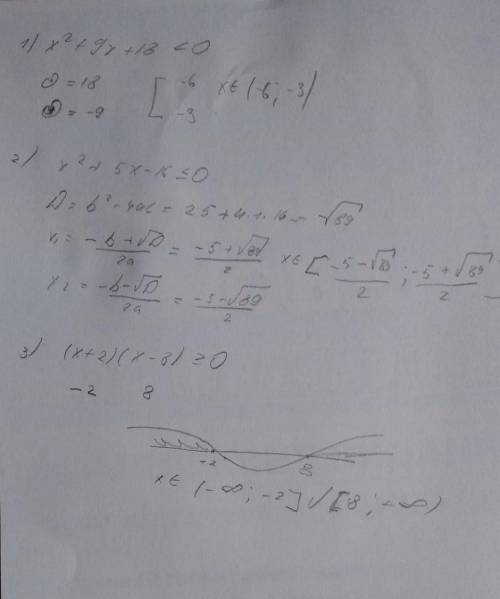 1) x² + 9x + 18 < 0
= 18
= -9
[ -6
-3
x ∈ (-6; -3)
2) x² + 5x - 16 ≤ 0
D = b² - 4ac = 25 + 4·1·16 = √89
x₁ = (-b + √D)/2a = (-5 + √89)/2
x ∈ [(-5 - √89)/2 ; (-5 + √89)/2
x₂ = (-b - √D)/2a = (-5 - √89)/2
3) (x+2)(x-8) ≥ 0
-2 8
-2 8
x ∈ (-∞; -2] ∪ [8; +∞)